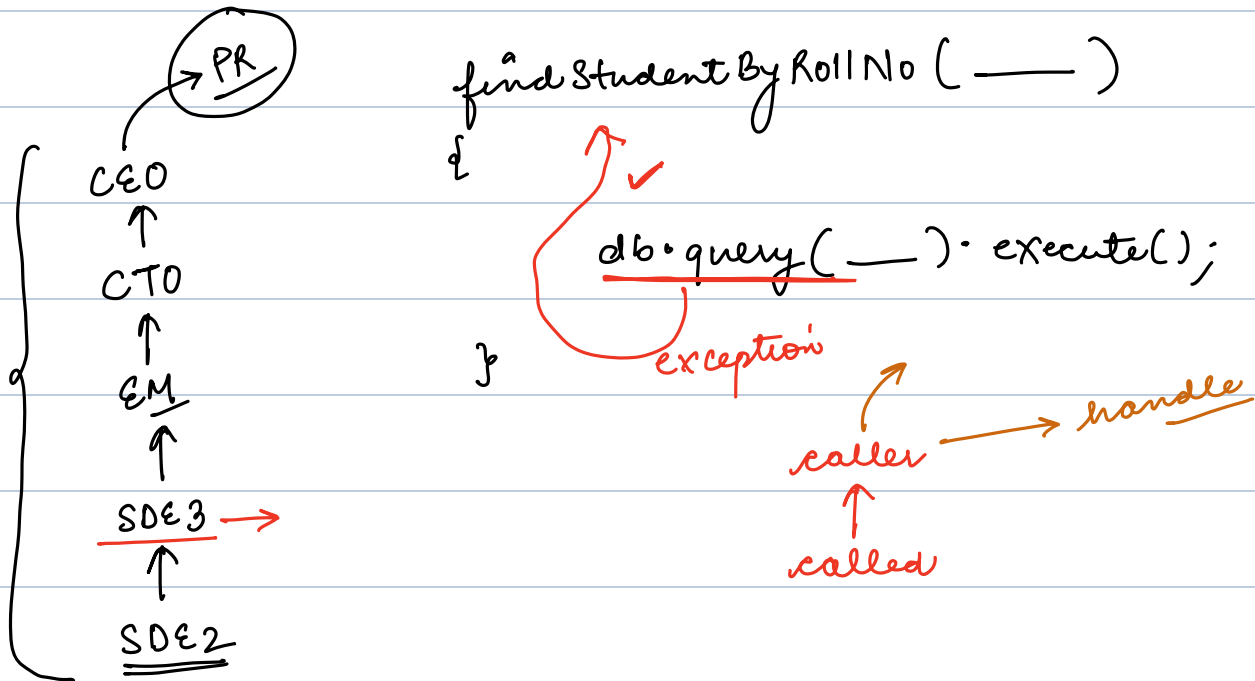 PR
CEO
CTO
EM
SDE3
SDE2
findStudentByRollNo( ___ )
{
db.query( ___ ). execute();
}
exception
caller
handle
called